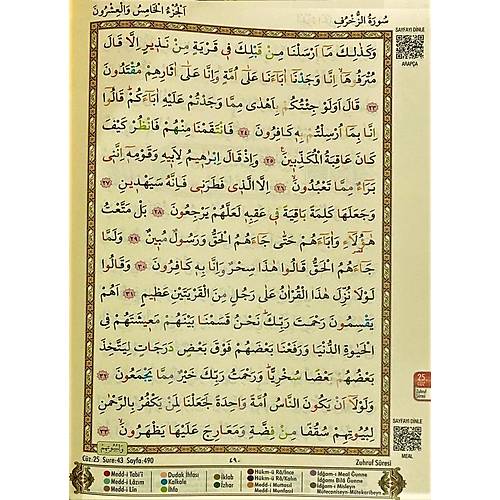 اَلْجُزْءُ الْخَامِسُ وَالْعِشْرُونَ
سُورَةُ الزُّخْرُفِ
SAYFAYI DİNLE
ARAPÇA
وَكَذٰلِكَ مَٓا اَرْسَلْنَا مِنْ قَبْلِكَ ف۪ي قَرْيَةٍ مِنْ نَذ۪يرٍ اِلَّا قَالَ
مُتْرَفُوهَٓا اِنَّا وَجَدْنَٓا اٰبَٓاءَنَا عَلٰٓى اُمَّةٍ وَاِنَّا عَلٰٓى اٰثَارِهِمْ مُقْتَدُونَ
﴿٢٣﴾ قَالَ اَوَلَوْ جِئْتُكُمْ بِاَهْدٰى مِمَّا وَجَدْتُمْ عَلَيْهِ اٰبَٓاءَكُمْ قَالُٓوا
اِنَّا بِمَٓا اُرْسِلْتُمْ بِه۪ كَافِرُونَ ﴿٢٤﴾ فَانْتَقَمْنَا مِنْهُمْ فَانْظُرْ كَيْفَ
كَانَ عَاقِبَةُ الْمُكَذِّب۪ينَ ﴿٢٥﴾ وَاِذْ قَالَ اِبْرٰه۪يمُ لِاَب۪يهِ وَقَوْمِه۪ٓ اِنَّن۪ي
بَرَٓاءٌ مِمَّا تَعْبُدُونَ ﴿٢٦﴾ اِلَّا الَّذ۪ي فَطَرَن۪ي فَاِنَّهُ سَيَهْد۪ينِ ﴿٢٧﴾
وَجَعَلَهَا كَلِمَةً بَاقِيَةً ف۪ي عَقِبِه۪ لَعَلَّهُمْ يَرْجِعُونَ ﴿٢٨﴾ بَلْ مَتَّعْتُ
هٰٓؤُ۬لَٓاءِ وَاٰبَٓاءَهُمْ حَتّٰى جَٓاءَهُمُ الْحَقُّ وَرَسُولٌ مُب۪ينٌ ﴿٢٩﴾ وَلَمَّا
جَٓاءَهُمُ الْحَقُّ قَالُوا هٰذَا سِحْرٌ وَاِنَّا بِه۪ كَافِرُونَ ﴿٣٠﴾ وَقَالُوا
لَوْلَا نُزِّلَ هٰذَا الْقُرْاٰنُ عَلٰى رَجُلٍ مِنَ الْقَرْيَتَيْنِ عَظ۪يمٍ ﴿٣١﴾ اَهُمْ
يَقْسِمُونَ رَحْمَتَ رَبِّكَ نَحْنُ قَسَمْنَا بَيْنَهُمْ مَع۪يشَتَهُمْ فِي
الْحَيٰوةِ الدُّنْيَا وَرَفَعْنَا بَعْضَهُمْ فَوْقَ بَعْضٍ دَرَجَاتٍ لِيَتَّخِذَ
بَعْضُهُمْ بَعْضًا سُخْرِيًّا وَرَحْمَتُ رَبِّكَ خَيْرٌ مِمَّا يَجْمَعُونَ ﴿٣٢﴾
وَلَوْلَٓا اَنْ يَكُونَ النَّاسُ اُمَّةً وَاحِدَةً لَجَعَلْنَا لِمَنْ يَكْفُرُ بِالرَّحْمٰنِ
لِبُيُوتِهِمْ سُقُفًا مِنْ فِضَّةٍ وَمَعَارِجَ عَلَيْهَا يَظْهَرُونَ ﴿٣٣﴾
وَلِبُيُوتِهِمْ
25.
CÜZ
Zuhruf
Sûresi
SAYFAYI DİNLE
MEAL
Cüz:25 Sure:43 Sayfa:490
٤٩٠
Zuhruf Sûresi
Medd-i Tabiî
Medd-i Lâzım
Medd-i Lîn
Dudak İhfası
Kalkale
İhfa
İklab
İzhar
Hükm-ü Râ/İnce
Hükm-ü Râ/Kalın
Medd-i Muttasıl
Medd-i Munfasıl
İdğam-ı Meal Gunne
İdğam-ı Bilâ Gunne
İdğam-ı Misleyn
Mütecaniseyn-Mütekaribeyn